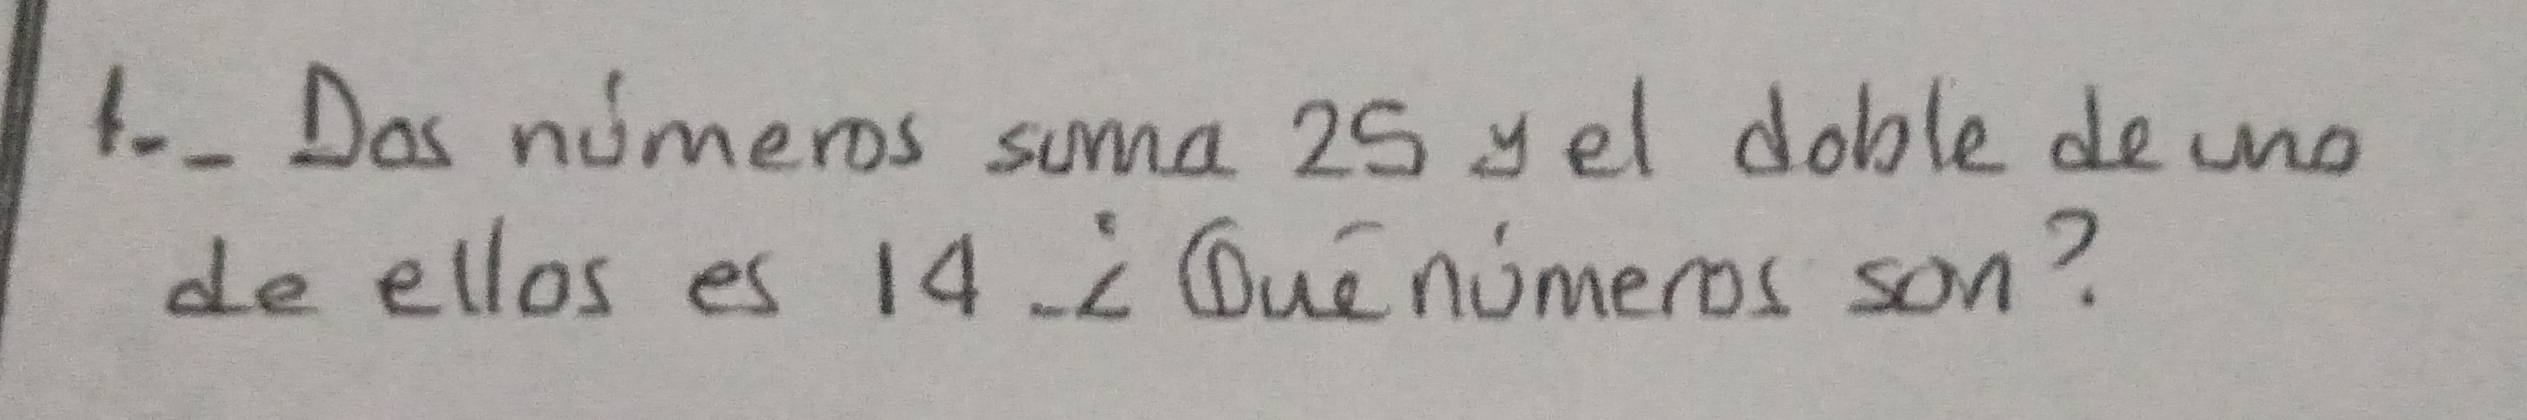 1.- Dos números suma 25 y el doble de uno
de ellos es 14. ¿Qué números son?